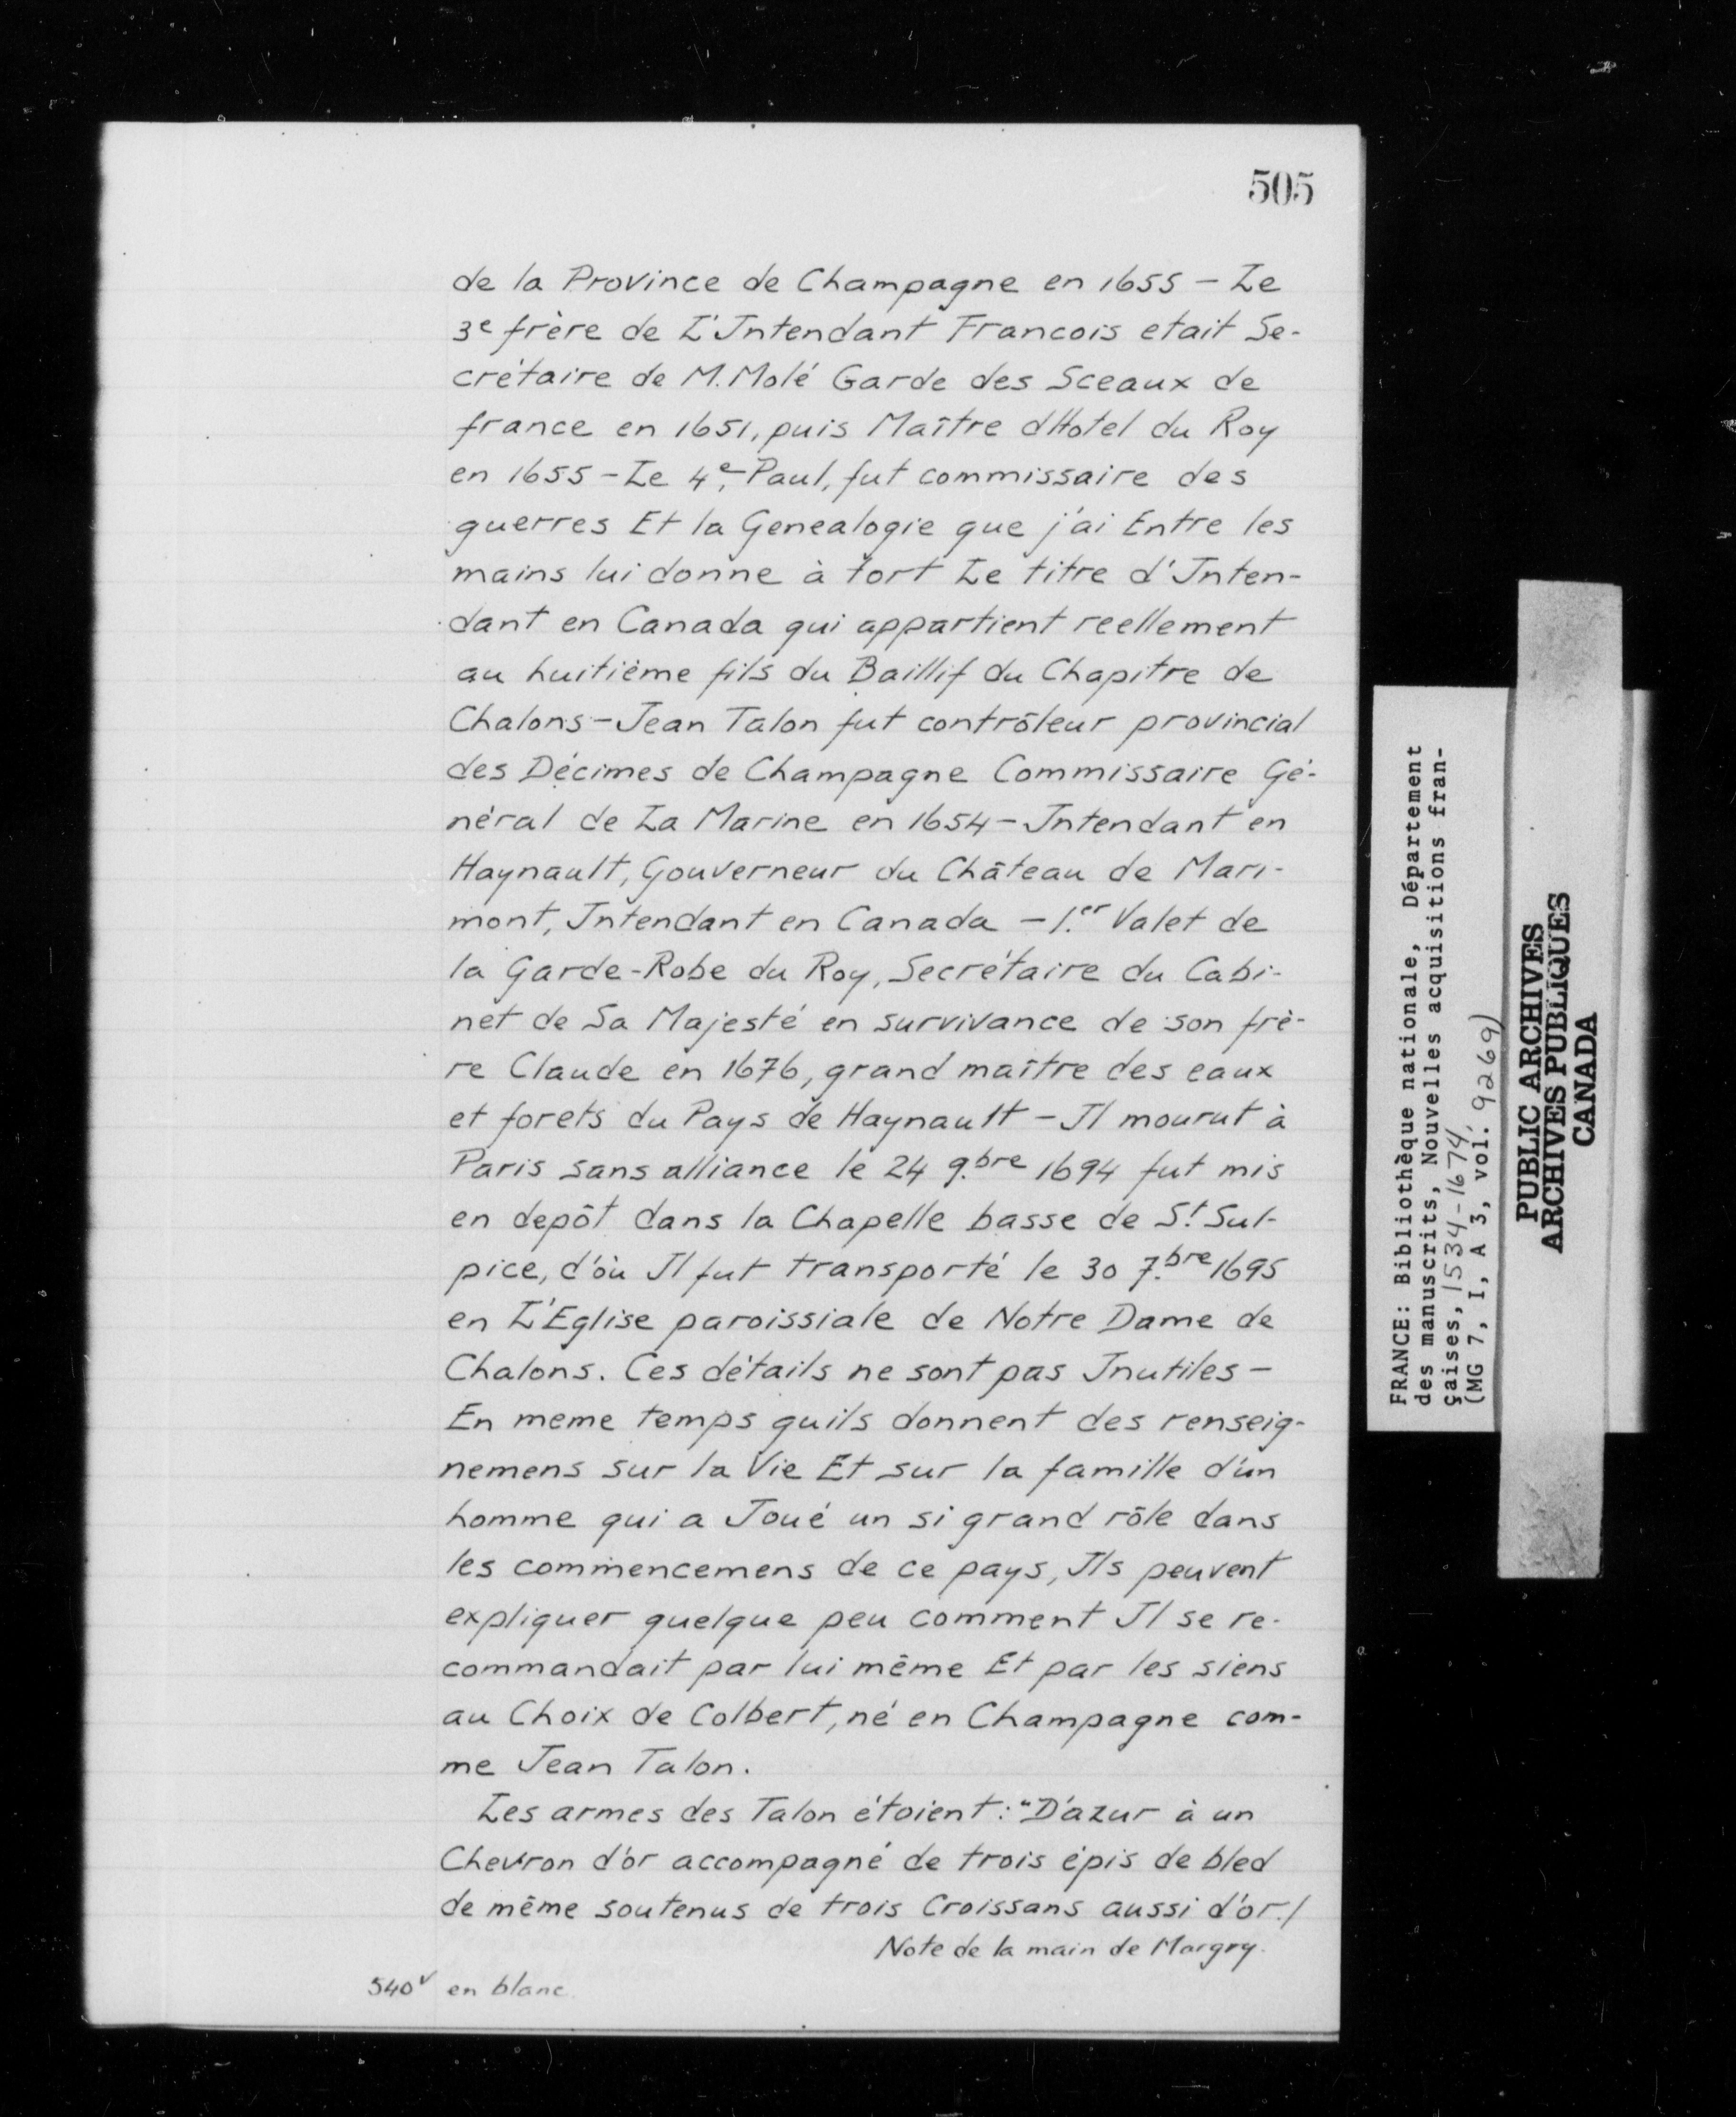 505
de la Province de Champagne en 1655 - Le
3e frère de L'Intendant Francois etait Se-
crétaire de M. Molé Garde des Sceaux de
france en 1651, puis Maître dHotel du Roy
en 1655 - Le 4e, Paul, fut commissaire des
guerres Et la Genealogie que j'ai Entre les
mains lui donne à tort Le titre d'Inten-
dant en Canada qui appartient reellement
au huitième fils du Baillif du Chapitre de
Chalons - Jean Talon fut contrôleur provincial
des Décimes de Champagne Commissaire Gé-
néral de La Marine en 1654 - Intendant en
Haynault, Gouverneur du Château de Mari-
mont, Intendant en Canada - 1.er Valet de
la Garde-Robe du Roy, Secrétaire du Cabi-
net de Sa Majesté en survivance de son frè-
re Claude en 1676, grand maître des eaux
et forets du Pays de Haynault - Il mourut à
Paris sans alliance le 24 9.bre 1694 fut mis
en depôt dans la Chapelle basse de St Sul-
pice, d'où Il fut transporté le 30 7.bre 1695
en L'Eglise paroissiale de Notre Dame de
Chalons. Ces détails ne sont pas Inutiles -
En meme temps quils donnent des renseig-
nemens sur la Vie Et sur la famille d'un
homme qui a Joué un si grand rôle dans
les commencemens de ce pays, Ils peuvent
expliquer quelque peu comment Il se re-
commandait par lui même Et par les siens
au Choix de Colbert, né en Champagne com-
me Jean Talon.
Les armes des Talon étoient : "D'azur à un
Chevron d'or accompagné de trois épis de bled
de même soutenus de trois Croissans aussi d'or./
Note de la main de Margry.
540v en blanc.
FRANCE: Bibliothèque nationale, Département
des manuscrits, Nouvelles acquisitions fran-
çaises, 1534-1674,
(MG 7, I, A 3, vol. 9269)
PUBLIC ARCHIVES
ARCHIVES PUBLIQUES
CANADA